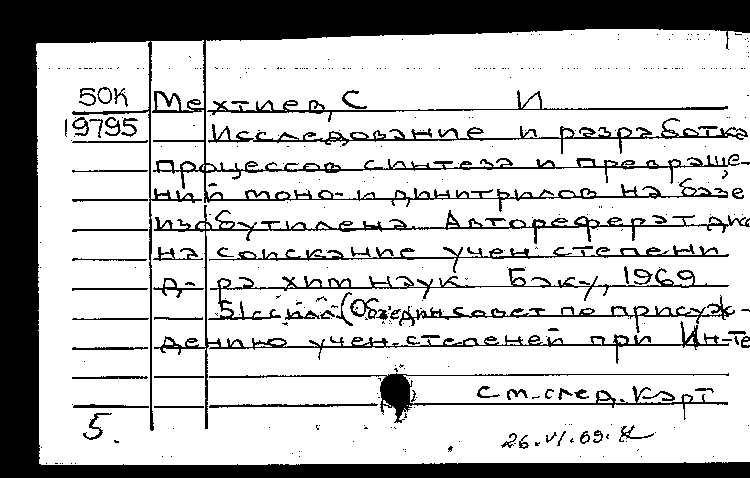 50К Мехтиев, С И
19795 Исследование и разработка
процессов синтеза и превраще-
ний моно- и динитрилов на базе
изобутилена. Автореферат дис
на соискание учен. степени
д-ра хим наук. Баку, 1969.
51с с илл (Объедин. совет по присуж-
дению учен. степеней при Ин-те
см. след. карт
5. 26.VI.69.